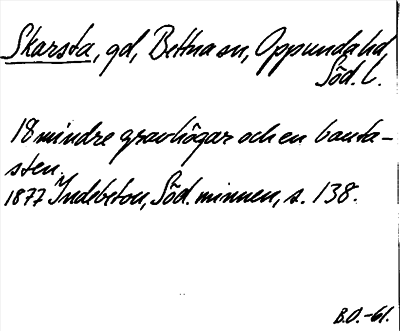 Skarsta, gd, Bettna sn, Oppunda hd
Söd. l.
18 mindre gravhögar och en bauta-
sten.
1877 Indebetou, Söd. minnen, s. 138.
B.O.-61.